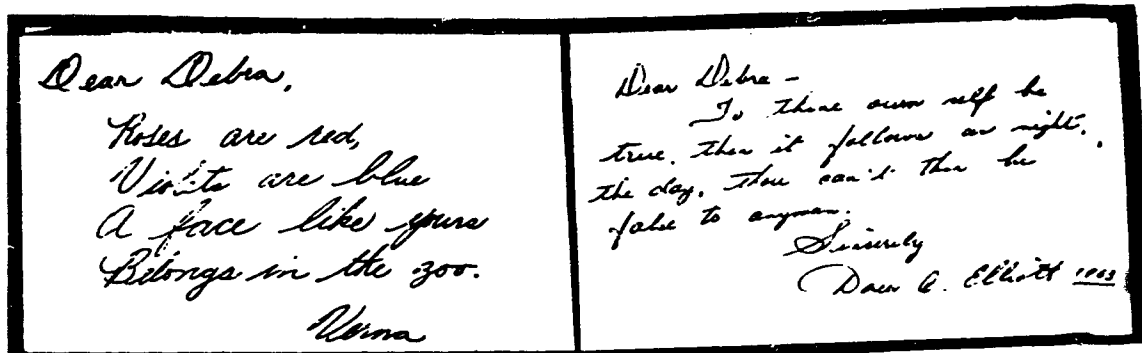 Dear Debra,
Roses are red,
Violets are blue
A face like yours
Belongs in the zoo.
Verna
Dear Debra -
To thine own self be
true. then it follows as night,
the day, thou can't then be
false to anyman.
Sincerely
A. Elliott 1963